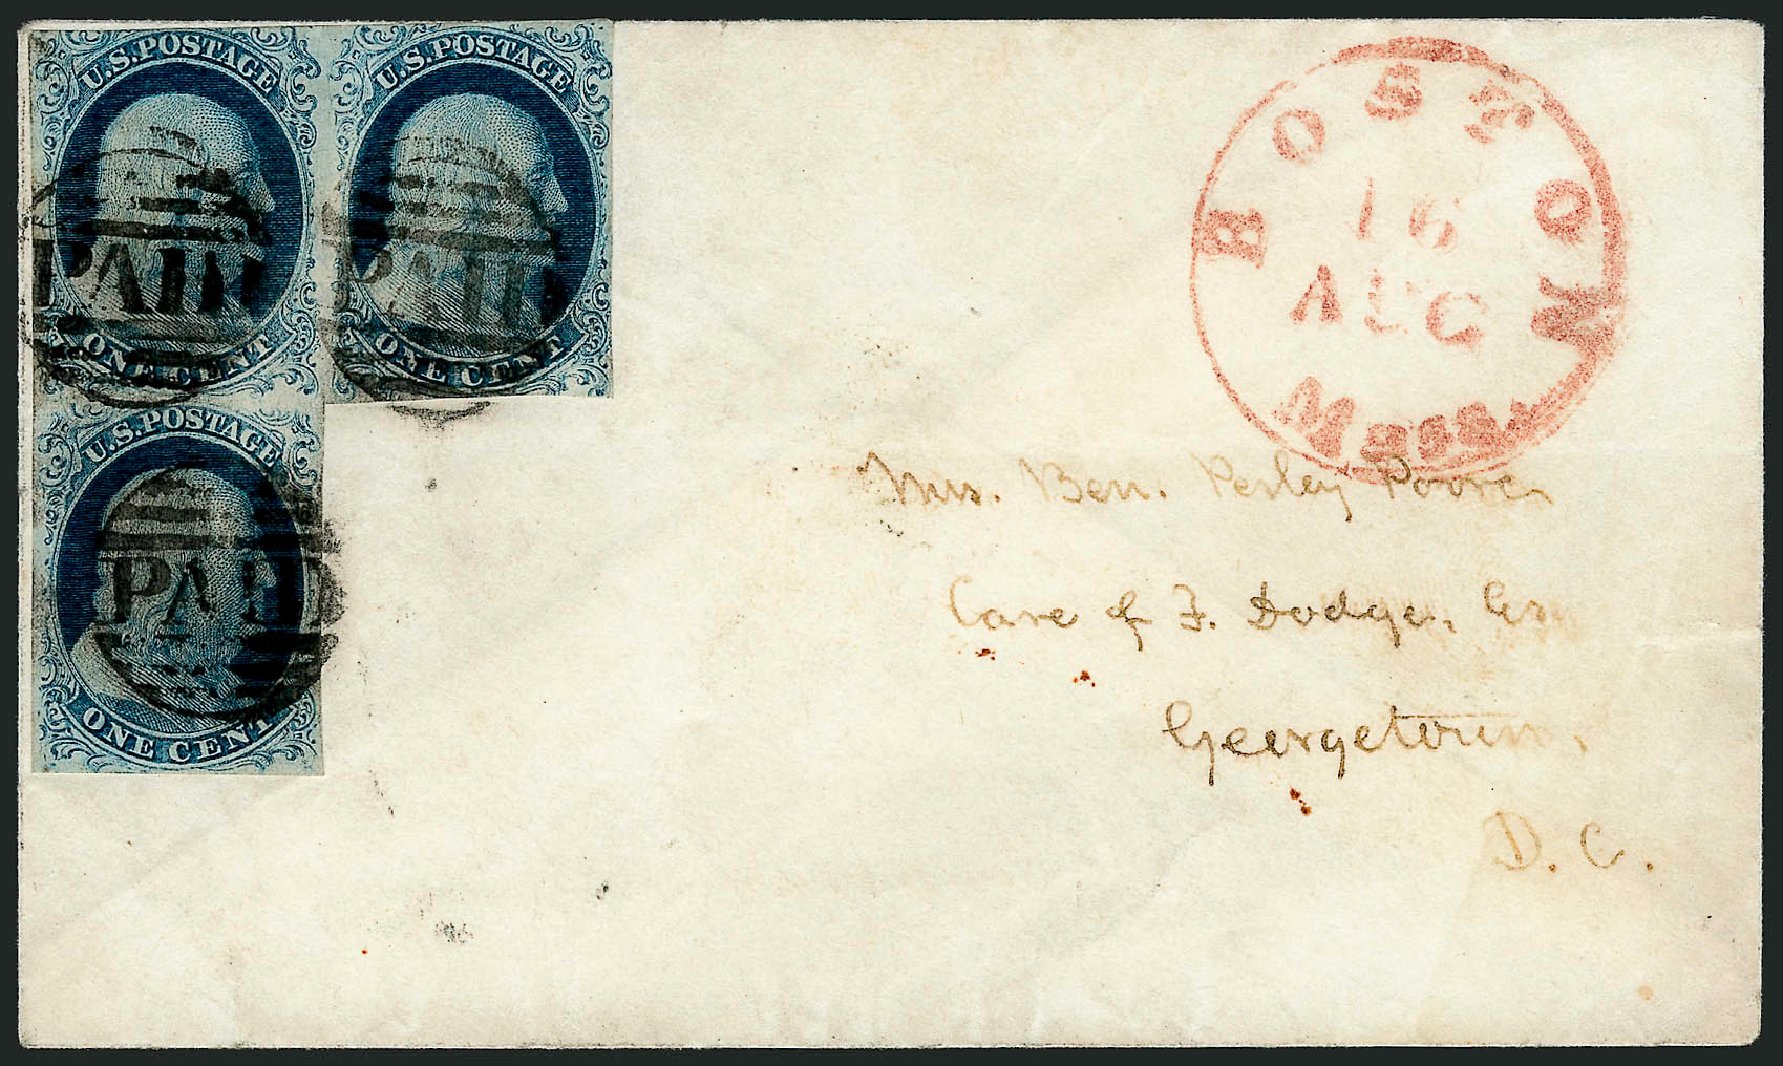 U.S. POSTAGE
ONE CENT
PAID
U.S. POSTAGE
ONE CENT
PAID
U.S. POSTAGE
ONE CENT
PAID
BOSTON
16
AUG
Mass.
Mrs. Ben. Perley Poore
Care of F. Dodge, Es
Georgetown,
D. C.